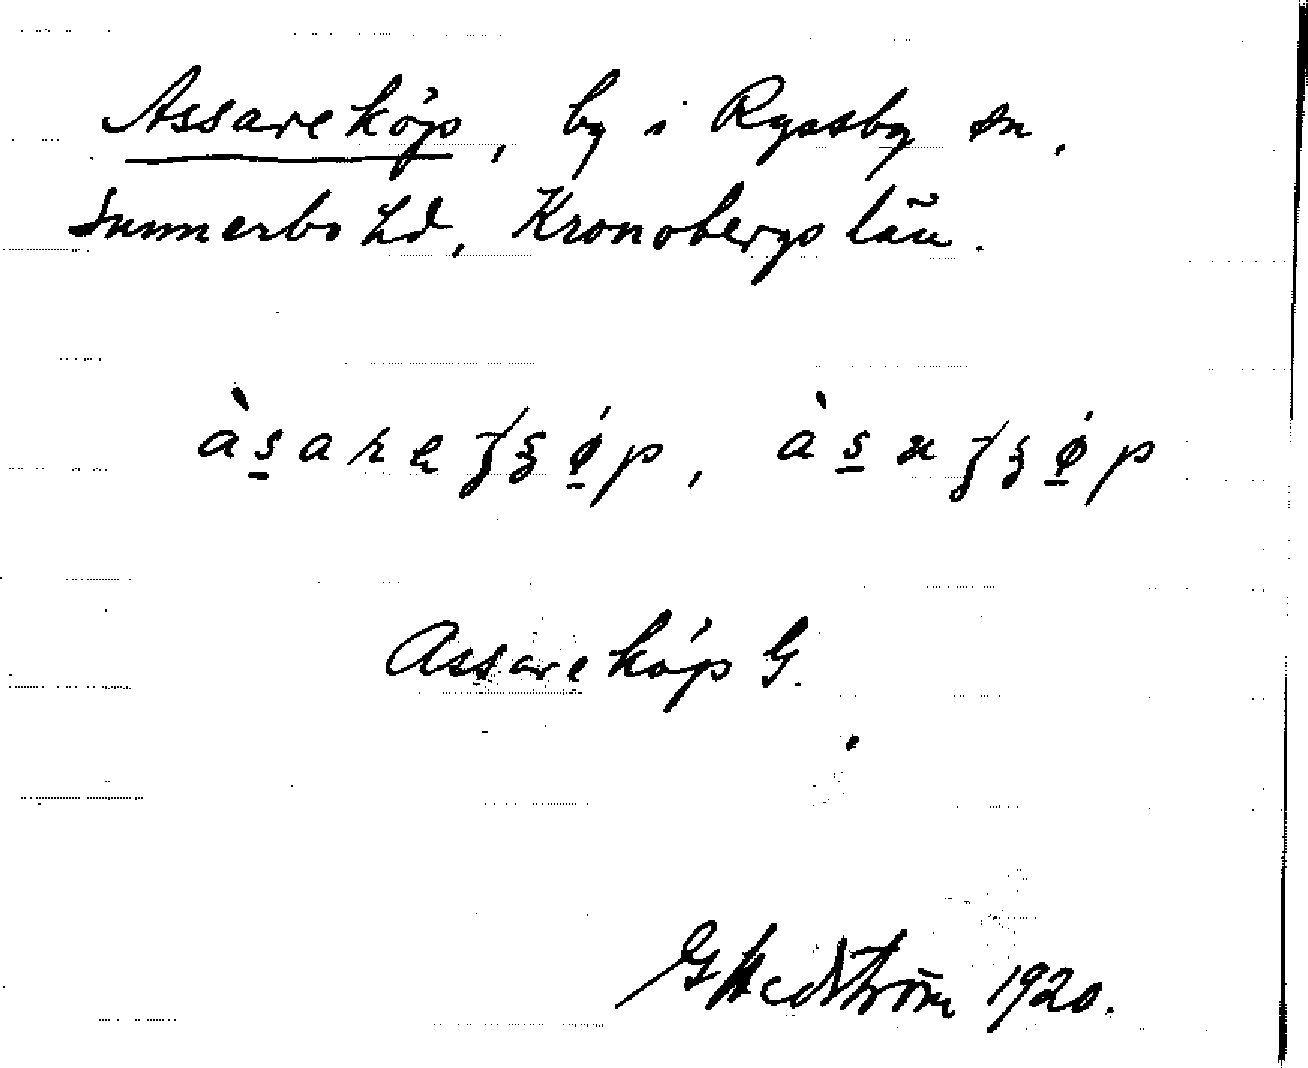 Assareköp, by i Ryssby sn,
Sunnerbo hd, Kronobergs län.
Assareköp G.
G Hedström 1920.